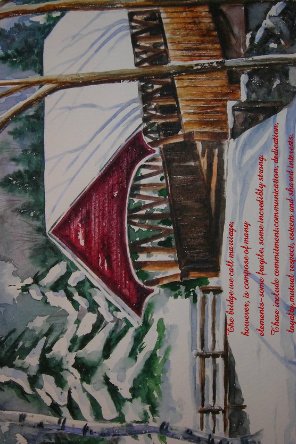 The bridge we call marriage,
however, is compose of many
elements—some fragile, some incredibly strong.
These include commitment, communication, dedication,
loyalty, mutual respect, esteem and shared interests.